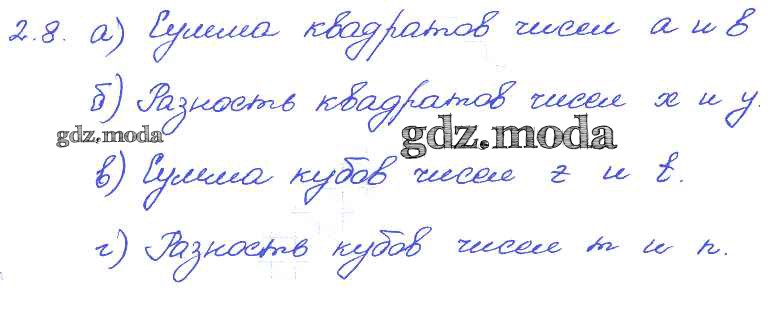 2.8. а) Сумма квадратов чисел a и b
б) Разность квадратов чисел x и y.
gdz.moda gdz.moda
в) Сумма кубов чисел z и t.
г) Разность кубов чисел m и n.